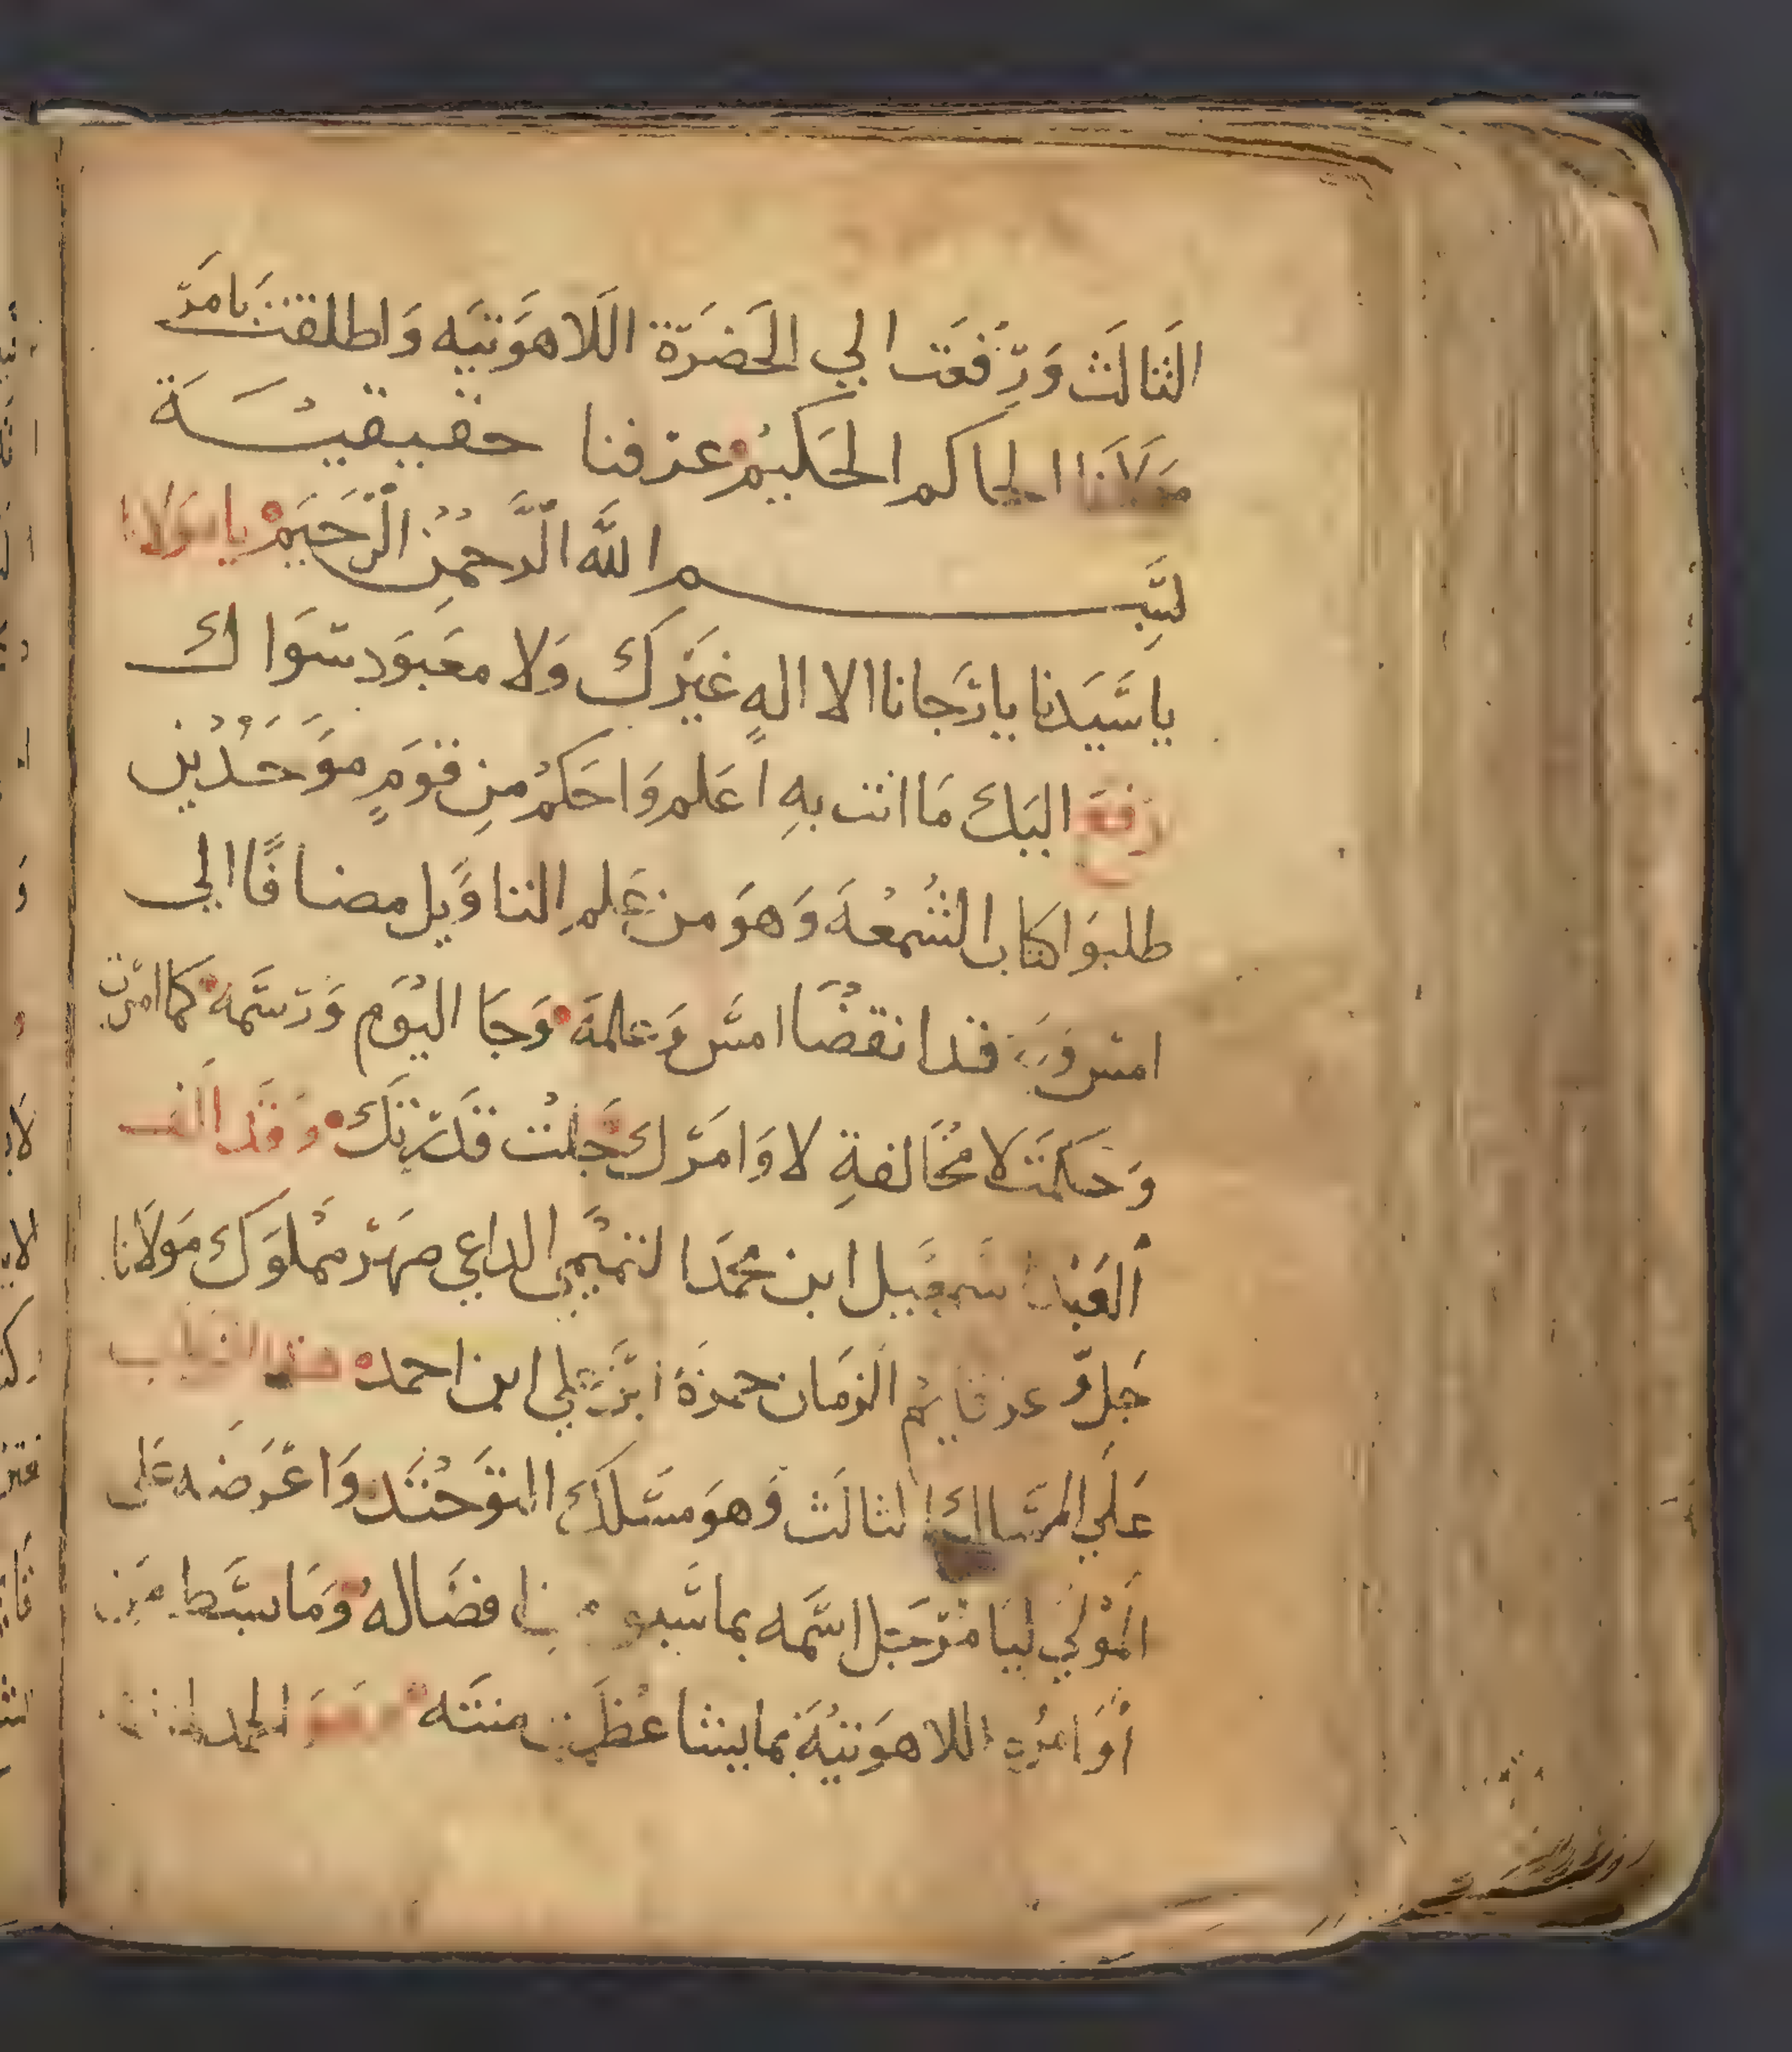 الثالث ورفعت الي الحضرة اللاهوتيه واطلقت بامر
مولانا الحاكم الحكيم عرفنا حقيقيسة
بسم الله الرحمن الرحيم يا مولانا
يا سيدنا يا رجانا الا اله غيرك ولا معبود سواك
رفع اليك ما انت به اعلم واحكم من قوم موحدين
طلبوا كتاب الشمعة وهو من علم التاويل مضافا الي
امس قد انقضا امس وعلمه وجا اليوم ورسمه كما امرت
وحكمت لا مخالفة لاوامرك جلت قدرتك وقد الف
العبد اسمعيل ابن محمد التميمي الداعي صهر مملوك مولانا
جل قايم الزمان حمزة ابن علي ابن احمد هذا الكتاب
علي المسلك الثالث وهو مسلك التوحيد واعرضه على
المولي ليامر جل اسمه بما افضاله وما بسط من
اوامره اللاهوتية بما يشا عظمت منته الحمد